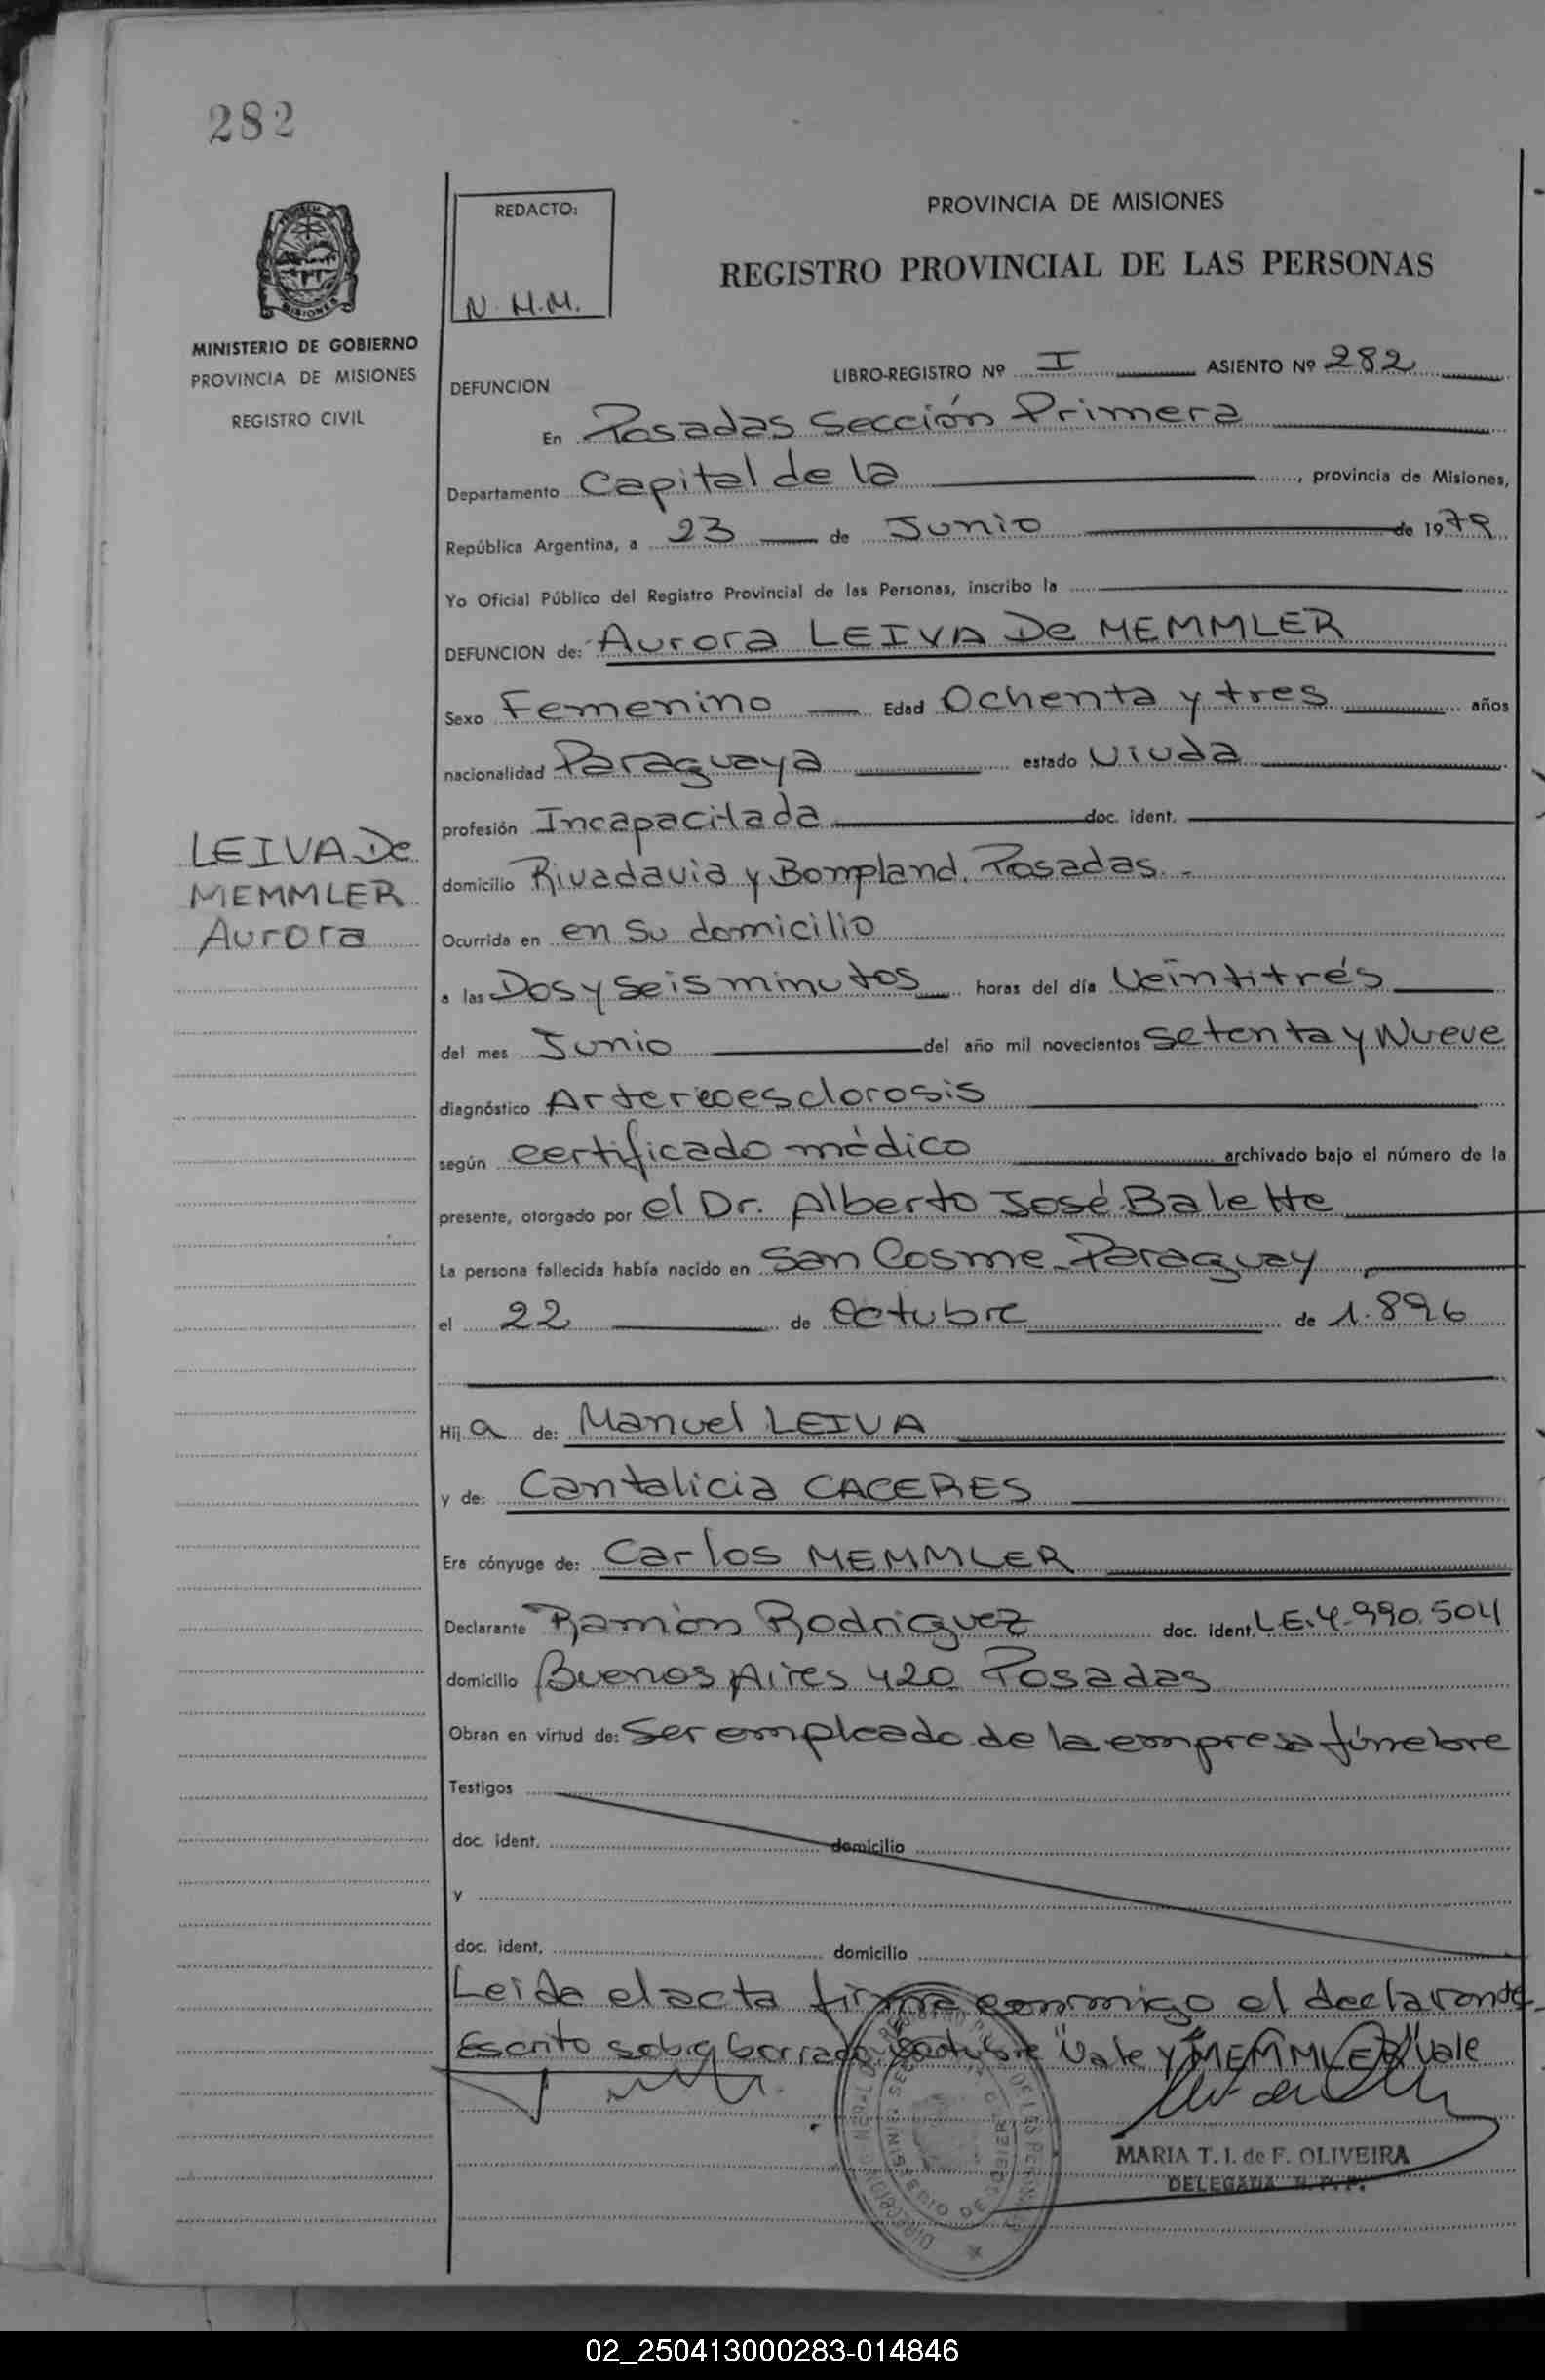 282
MINISTERIO DE GOBIERNO
PROVINCIA DE MISIONES
REGISTRO CIVIL
REDACTO:
N. M.M.
PROVINCIA DE MISIONES
REGISTRO PROVINCIAL DE LAS PERSONAS
DEFUNCION LIBRO-REGISTRO Nº I ASIENTO Nº 282
En Posadas Sección Primera
Departamento Capital de la, provincia de Misiones,
República Argentina, a 23 de Junio de 1979
Yo Oficial Público del Registro Provincial de las Personas, inscribo la
DEFUNCION de: Aurora LEIVA De MEMMLER
Sexo Femenino Edad Ochenta y tres años
nacionalidad Paraguaya estado Viuda
profesión Incapacitada doc. ident.
LEIVA De
MEMMLER
Aurora
domicilio Rivadavia y Bompland. Posadas.-
Ocurrida en en su domicilio
a las Dos y seis minutos horas del día Veintitrés
del mes Junio del año mil novecientos setenta y Nueve
diagnóstico Arterioesclorosis
según certificado médico archivado bajo el número de la
presente, otorgado por el Dr. Alberto José Balette
La persona fallecida había nacido en San Cosme-Paraguay
el 22 de Octubre de 1.896
Hij a de: Manuel LEIVA
y de: Cantalicia CACERES
Era cónyuge de: Carlos MEMMLER
Declarante Ramón Rodriguez doc. ident. L.E. 4.990.504
domicilio Buenos Aires 420 Posadas
Obran en virtud de: Ser empleado de la empresa fúnebre
Testigos
doc. ident. domicilio
y
doc. ident. domicilio
Leida el acta firma conmigo el declarante.
Escrito sobre borrado: "Octubre" Vale y "MEMMLER" Vale
MARIA T. I. de F. OLIVEIRA
DELEGADA R. P. P.
02_250413000283-014846